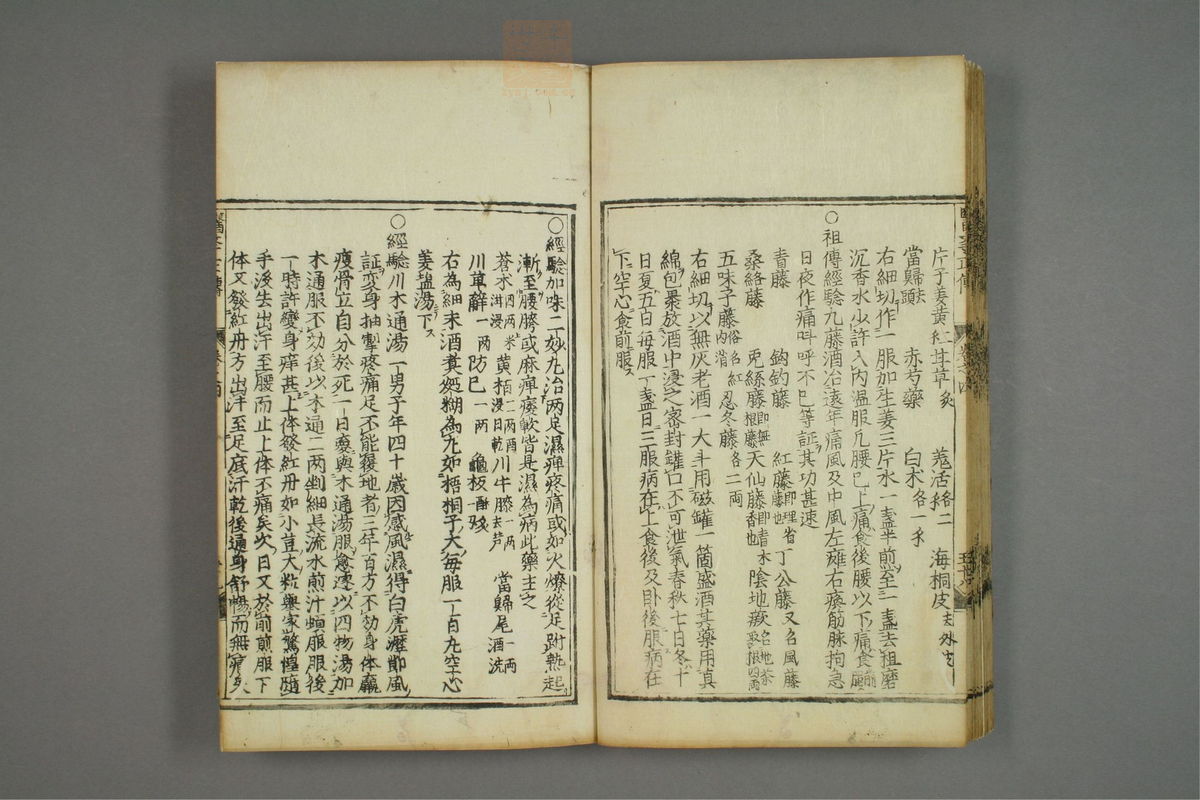 片子姜黃 紅 甘草炙 羗活各二 海桐皮去外皮
當歸去頭 赤芍藥 白朮各一
右細切作一服加生姜三片水一盞半煎至一盞去粗磨
沉香水少許入內温服凡腰已上痛食後腰以下痛食前服
○祖傳經驗九藤酒治遠年痛風及中風左癱右瘓筋脉拘急
日夜作痛呌呼不已等証其功甚速
青藤 鈎釣藤 紅藤即理省藤也 丁公藤又名風藤
桑絡藤 兎絲藤即無根藤 天仙藤即青木香也 陰地蕨名地茶取根四兩
五味子藤俗名紅內消 忍冬藤各二兩
右細切以無灰老酒一大斗用磁罐一箇盛酒其藥用真
綿包褁放酒中浸之密封罐口不可泄氣春秋七日冬十
日夏五日每服一盞日三服病在上食後及卧後服病在
下空心食前服
○經驗加味二妙丸治兩足濕痺疼痛或如火燎從足跗熱起
漸至腰胯或麻痺痿軟皆是濕為病此藥主之
蒼朮四兩米泔浸 黃栢二兩酒浸日乾 川牛膝一兩去芦 當歸尾一兩酒洗
川萆薢一兩 防已一兩 龜板酥炙
右為細末酒煑麪糊為丸如梧桐子大每服一百丸空心
姜盐湯下
○經驗川木通湯一男子年四十歲因感風濕得白虎歷節風
証変身抽掣疼痛足不能履地者三年百方不効身体羸
瘦骨立自分於死一日夣與木通湯服愈遂以四物湯加
木通服不効後以木通二兩剉細長流水煎汁頓服服後
一時許變身痒甚上体發紅丹如小荳大粒舉家驚惶隨
手沒出汗至腰而止上体不痛矣次日又於前煎服下
体又發紅丹方出汗至足底汗乾後通身舒暢而無痛